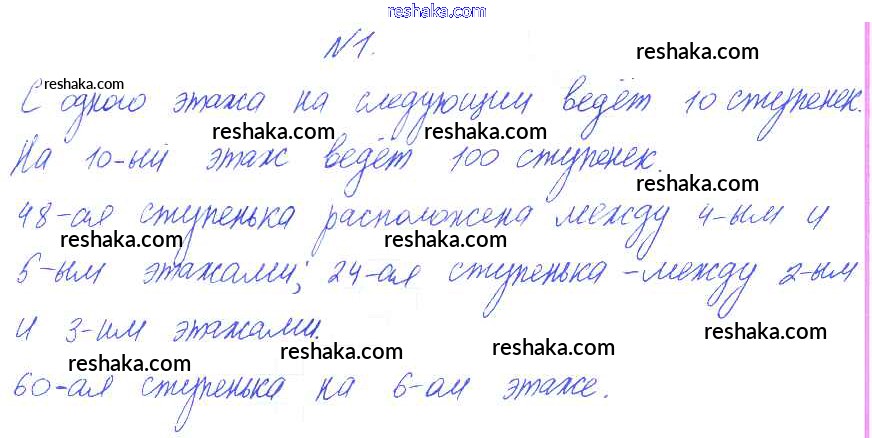 reshaka.com
№1.
reshaka.com
reshaka.com
С одного этажа на следующий ведёт 10 ступенек.
reshaka.com reshaka.com
На 10-ый этаж ведёт 100 ступенек.
reshaka.com
48-ая ступенька расположена между 4-ым и
reshaka.com reshaka.com
5-ым этажами; 24-ая ступенька - между 2-ым
и 3-им этажами.
reshaka.com reshaka.com reshaka.com reshaka.com
60-ая ступенька на 6-ом этаже.